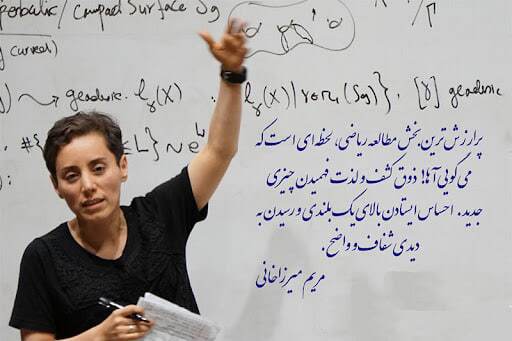 /compact Surface Sg
geodesic. ℓγ(X) : ℓγ(X) | γ ∈ τ₁(Sg)}. [γ] geodesic
≤L} ~ e
پرارزش‌ترین بخش مطالعه ریاضی، لحظه‌ای است که
می‌گویی آها! ذوق کشف و لذت فهمیدن چیزی
جدید. احساس ایستادن بالای یک بلندی و رسیدن به
دیدی شفاف و واضح.
مریم میرزاخانی